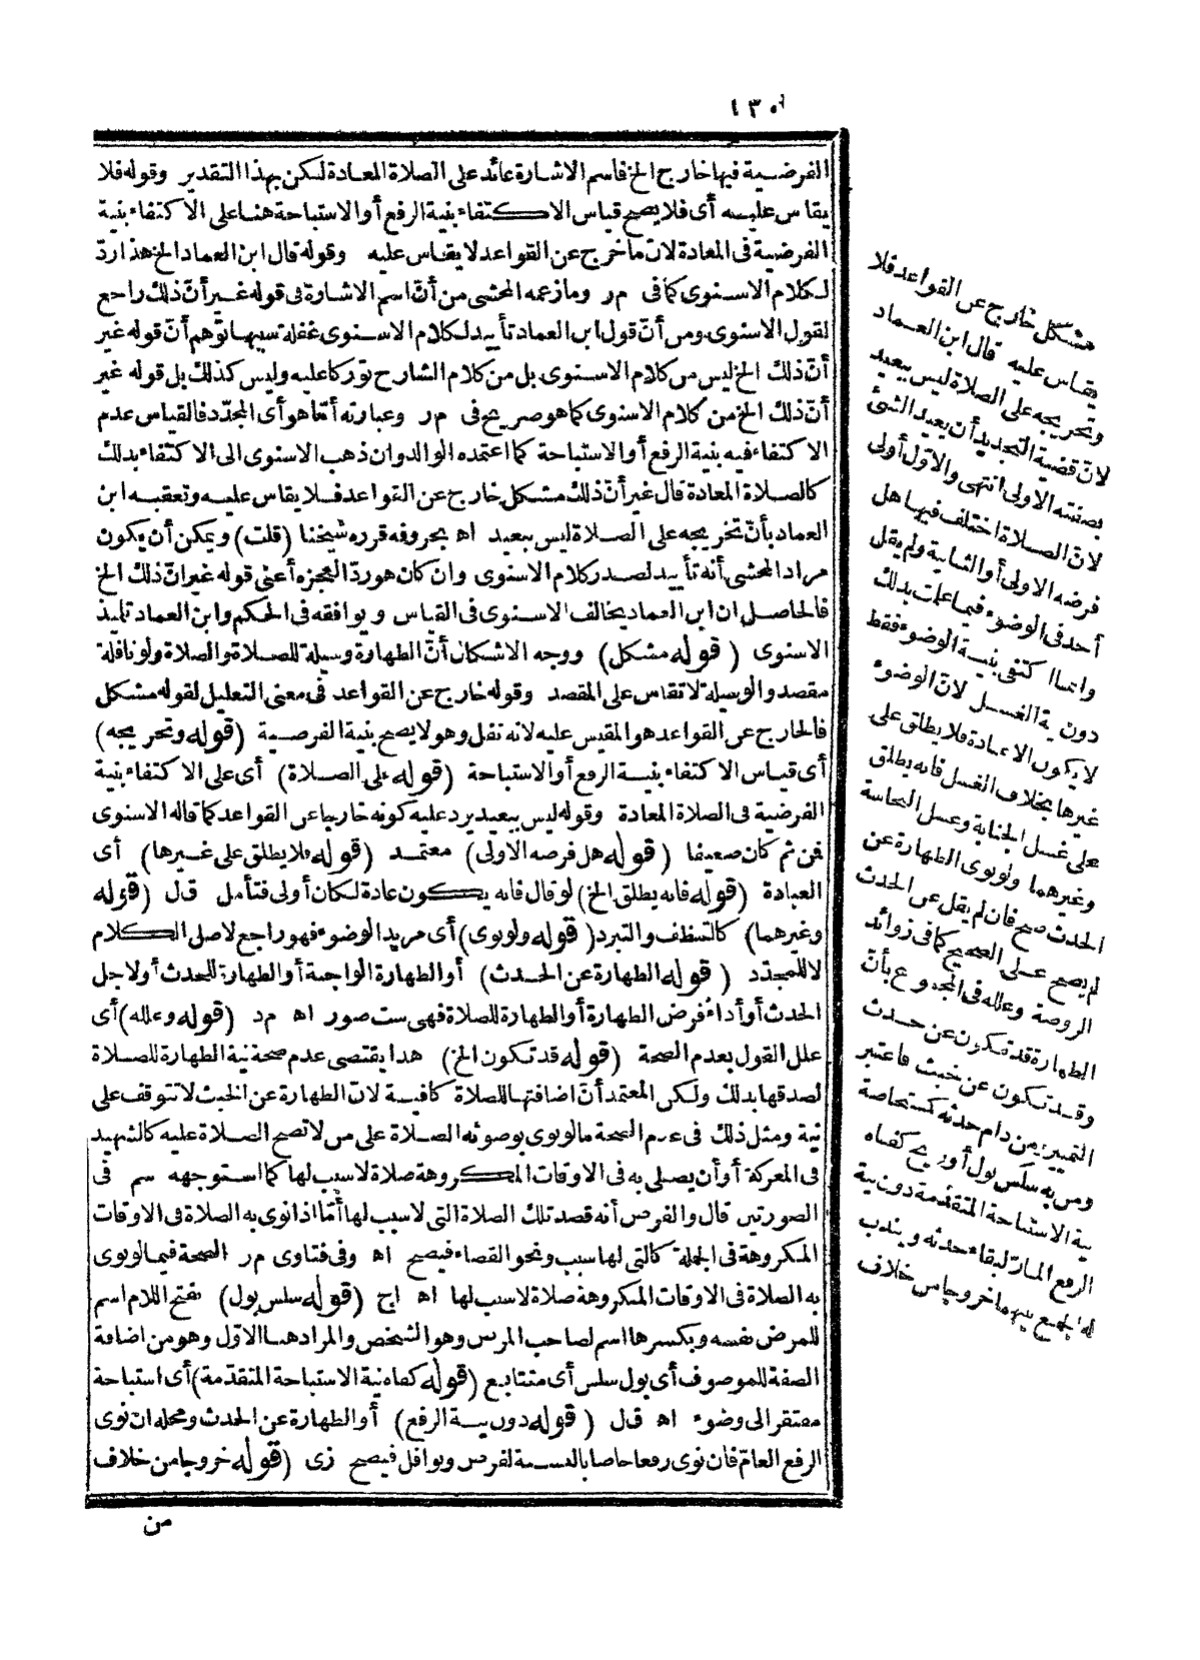 ١٣٠
الفرضية فيها خارج الخ فاسم الاشارة عائد على الصلاة المعادة لكن بهذا التقدير وقوله فلا
يقاس عليه أى فلا يصح قياس الاكتفاء بنية الرفع أو الاستباحة هنا على الاكتفاء بنية
الفرضية فى المعادة لان ما خرج عن القواعد لا يقاس عليه وقوله قال ابن العماد الخ هذا ردّ
لكلام الاسنوى كما فى م ر وما زعمه المحشى من أنّ اسم الاشارة فى قوله غير أنّ ذلك راجع
لقول الاسنوى ومن أنّ قول ابن العماد تأييد لكلام الاسنوى غفلة سببها توّهم أنّ قوله غير
أنّ ذلك الخ ليس من كلام الاسنوى بل من كلام الشارح توركا عليه وليس كذلك بل قوله غير
أنّ ذلك الخ من كلام الاسنوى كما هو صريح فى م ر وعبارته أمّا هو أى المجدّد فالقياس عدم
الاكتفاء فيه بنية الرفع أو الاستباحة كما اعتمده الوالد وان ذهب الاسنوى الى الاكتفاء بذلك
كالصلاة المعادة قال غير أنّ ذلك مشكل خارج عن القواعد فلا يقاس عليه وتعقبه ابن
العماد بأنّ تخريجه على الصلاة ليس ببعيد اه بحروفه قرره شيخنا (قلت) ويمكن أن يكون
مراد المحشى أنه تأييد لصدر كلام الاسنوى وان كان هو ردّ العجزه أعنى قوله غير أنّ ذلك الخ
فالحاصل ان ابن العماد يخالف الاسنوى فى القياس ويوافقه فى الحكم وابن العماد تلميذ
الاسنوى (قوله مشكل) ووجه الاشكال أنّ الطهارة وسيلة للصلاة والصلاة ولو نافلة
مقصد والوسيلة لا تقاس على المقصد وقوله خارج عن القواعد فى معنى التعليل لقوله مشكل
فالخارج عن القواعد هو المقيس عليه لانه نفل وهو لا يصح بنية الفرضية (قوله وتخريجه)
أى قياس الاكتفاء بنية الرفع أو الاستباحة (قوله على الصلاة) أى على الاكتفاء بنية
الفرضية فى الصلاة المعادة وقوله ليس ببعيد يرد عليه كونه خارجا عن القواعد كما قاله الاسنوى
فمن ثم كان ضعيفا (قوله هل فرضه الاولى) معتمد (قوله فلا يطلق على غيرها) أى
العبادة (قوله فانه يطلق الخ) لو قال فانه يكون عادة لكان أولى فتأمل ق ل (قوله
وغيرهما) كالتنظف والتبرد (قوله ولو نوى) أى مريد الوضوء فهو راجع لاصل الكلام
لا للمجدّد (قوله الطهارة عن الحدث) أو الطهارة الواجبة أو الطهارة للحدث أو لاجل
الحدث أو أداء فرض الطهارة أو الطهارة للصلاة فهى ست صور اه م د (قوله وعلله) أى
علل القول بعدم الصحة (قوله قد تكون الخ) هذا يقتضى عدم صحة نية الطهارة للصلاة
لصدقها بذلك ولكن المعتمد أنّ اضافتها للصلاة كافية لانّ الطهارة عن الخبث لا تتوقف على
نية ومثل ذلك فى عدم الصحة ما لو نوى بوضوئه الصلاة على من لا تصح الصلاة عليه كالشهيد
فى المعركة أو أن يصلى به فى الاوقات المكروهة صلاة لا سبب لها كما استوجهه سم فى
الصورتين قال والفرض أنه قصد تلك الصلاة التى لا سبب لها أمّا اذا نوى به الصلاة فى الاوقات
المكروهة فى الجملة كالتى لها سبب ونحو القضاء فيصح اه وفى فتاوى م ر الصحة فيما لو نوى
به الصلاة فى الاوقات المكروهة صلاة لا سبب لها اه اج (قوله سلس بول) بفتح اللام اسم
للمرض نفسه وبكسرها اسم لصاحب المرض وهو الشخص والمراد هنا الاوّل وهو من اضافة
الصفة للموصوف أى بول سلس أى متتابع (قوله كفاه نية الاستباحة المتقدّمة) أى استباحة
مفتقر الى وضوء اه ق ل (قوله دون نية الرفع) أو الطهارة عن الحدث ومحله ان نوى
الرفع العامّ فان نوى رفعا خاصا بالنسبة لفرض ونوافل فيصح زى (قوله خروجا من خلاف
من
مشكل خارج عن القواعد فلا
يقاس عليه قال ابن العماد
وتخريجه على الصلاة ليس ببعيد
لانّ قضية التجديد أن يعيد الشئ
بصفته الاولى انتهى والاوّل أولى
لانّ الصلاة اختلف فيها هل
فرضه الاولى أو الثانية ولم يقل
أحد فى الوضوء فيما علمت بذلك
وانما اكتفى بنية الوضوء فقط
دون نية الغسل لانّ الوضوء
لا يكون الا عبادة فلا يطلق على
غيرها بخلاف الغسل فانه يطلق
على غسل الجنابة وغسل النجاسة
وغيرهما ولو نوى الطهارة عن
الحدث صح فان لم يقل عن الحدث
لم يصح على الصحيح كما فى زوائد
الروضة وعلله فى المجموع بأنّ
الطهارة قد تكون عن حدث
وقد تكون عن خبث فاعتبر
التمييز ومن دام حدثه كمستحاضة
ومن به سلس بول أو ريح كفاه
نية الاستباحة المتقدّمة دون نية
الرفع المارّ لبقاء حدثه ويندب
له الجمع بينهما خروجا من خلاف